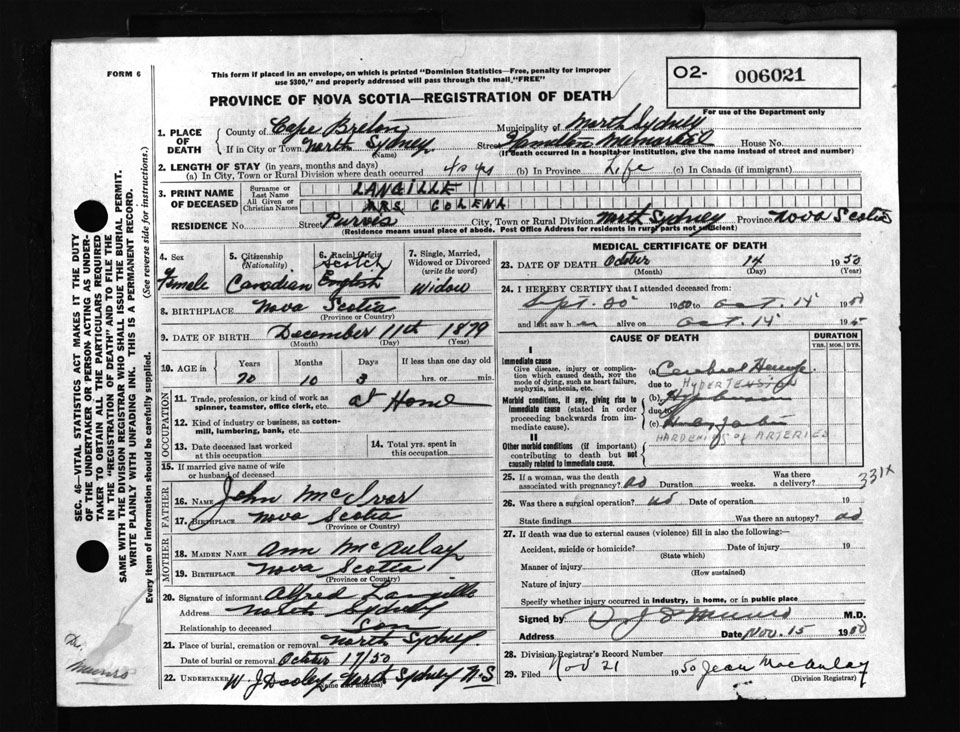 FORM 6
This form if placed in an envelope, on which is printed "Dominion Statistics—Free, penalty for improper
use $300," and properly addressed will pass through the mail "FREE"
PROVINCE OF NOVA SCOTIA—REGISTRATION OF DEATH
O2- 006021
For use of the Department only
1. PLACE OF DEATH
County of Cape Breton Municipality of North Sydney
If in City or Town North Sydney Street Hamilton Memorial House No.
(Name) (If death occurred in a hospital or institution, give the name instead of street and number)
2. LENGTH OF STAY (in years, months and days)
(a) In City, Town or Rural Division where death occurred 40 yrs (b) In Province Life (c) In Canada (if immigrant)
3. PRINT NAME OF DECEASED
Surname or Last Name LANGILLE
All Given or Christian Names MRS COLENA
RESIDENCE No. Street Purves City, Town or Rural Division North Sydney Province Nova Scotia
(Residence means usual place of abode. Post Office Address for residents in rural parts not sufficient)
4. Sex Female
5. Citizenship (Nationality) Canadian
6. Racial Origin Scotch English
7. Single, Married, Widowed or Divorced (write the word) Widow
8. BIRTHPLACE Nova Scotia
(Province or Country)
9. DATE OF BIRTH December 11th 1879
(Month) (Day) (Year)
10. AGE Years 70 Months 10 Days 3 If less than one day old hrs. or min.
OCCUPATION
11. Trade, profession, or kind of work as spinner, teamster, office clerk, etc. at Home
12. Kind of industry or business, as cotton-mill, lumbering, bank, etc.
13. Date deceased last worked at this occupation
14. Total yrs. spent in this occupation
15. If married give name of wife or husband of deceased
FATHER
16. NAME John McIvor
17. BIRTHPLACE Nova Scotia
(Province or Country)
MOTHER
18. MAIDEN NAME Ann McAulay
19. BIRTHPLACE Nova Scotia
(Province or Country)
20. Signature of informant Alfred Langille
Address North Sydney
Relationship to deceased Son
21. Place of burial, cremation or removal North Sydney
Date of burial or removal October 17/50
22. UNDERTAKER W. J Dooley, North Sydney N.S
(Name and address)
MEDICAL CERTIFICATE OF DEATH
23. DATE OF DEATH October 14 1950
(Month) (Day) (Year)
24. I HEREBY CERTIFY that I attended deceased from:
Sept. 20 1950 to Oct. 14 1950
and last saw h er alive on Oct. 14 19
CAUSE OF DEATH
DURATION
YRS. MOS. DYS.
I
Immediate cause
Give disease, injury or complication which caused death, NOT the mode of dying, such as heart failure, asphyxia, asthenia, etc.
(a) Cerebral Hemorr
due to HYPERTENSION
Morbid conditions, if any, giving rise to immediate cause (stated in order proceeding backwards from immediate cause).
(b)
due to
(c)
HARDENING OF ARTERIES
II
Other morbid conditions (if important) contributing to death but not causally related to immediate cause.
331x
25. If a woman, was the death associated with pregnancy? no Duration weeks. Was there a delivery?
26. Was there a surgical operation? no Date of operation 19
State findings Was there an autopsy? no
27. If death was due to external causes (violence) fill in also the following:—
Accident, suicide or homicide? Date of injury 19
(State which)
Manner of injury
(How sustained)
Nature of injury
Specify whether injury occurred in industry, in home, or in public place
Signed by Munro M.D.
Address Date Nov. 15 1950
28. Division Registrar's Record Number
29. Filed Nov 21 1950 Jean MacAulay
(Division Registrar)
SEC. 46—VITAL STATISTICS ACT MAKES IT THE DUTY
OF THE UNDERTAKER OR PERSON ACTING AS UNDER-
TAKER TO OBTAIN ALL THE PARTICULARS REQUIRED
IN THE "REGISTRATION OF DEATH" AND TO FILE THE
SAME WITH THE DIVISION REGISTRAR WHO SHALL ISSUE THE BURIAL PERMIT.
WRITE PLAINLY WITH UNFADING INK. THIS IS A PERMANENT RECORD.
Every item of information should be carefully supplied. (See reverse side for instructions.)
Dr. Munro